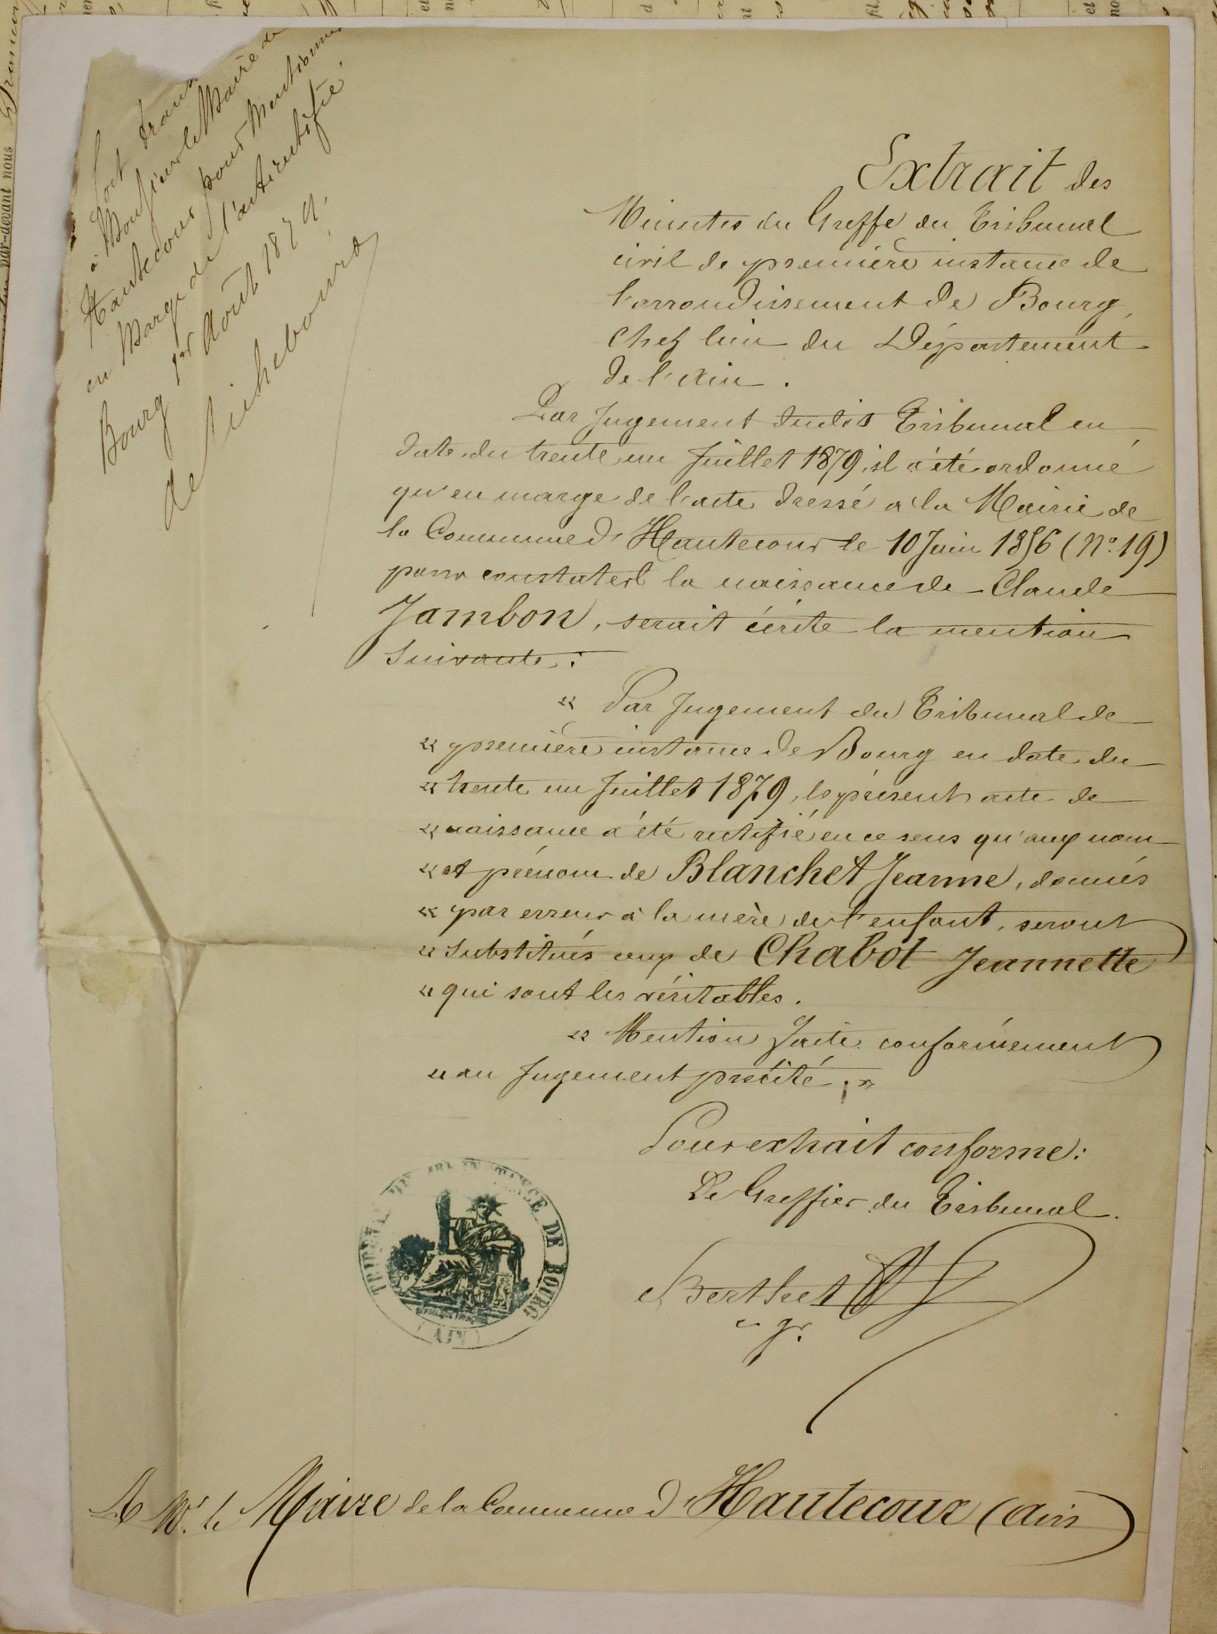 Soit trans
à Monsieur le Maire de
Hautecour pour Mention
en Marge de l'acte rectifié.
Bourg 1er Août 1879.
Extrait des
Minutes du Greffe du Tribunal
civil de première instance de
l'arrondissement de Bourg,
chef lieu du Département
de l'Ain.
Par Jugement dudit Tribunal en
date du trente un Juillet 1879, il a été ordonné
qu'en marge de l'acte dressé à la Mairie de
la Commune d'Hautecour le 10 Juin 1856 (No. 19)
pour constater la naissance de Claude
Jambon, serait écrite la mention
suivante :
" Par Jugement du Tribunal de
" première instance de Bourg en date du
" trente un Juillet 1879, le présent acte de
" naissance a été rectifié en ce sens qu'aux nom
" et prénom de Blanchet Jeanne, donnés
" par erreur à la mère de l'enfant, seront
" substitués ceux de Chabot Jeannette
" qui sont les véritables.
" Mention faite conformément
" au Jugement précité. "
Pour extrait conforme :
Le Greffier du Tribunal.
Berthet
c. gr.
TRIBUNAL DE 1RE INSTANCE DE BOURG
(AIN)
A Mr. le Maire de la Commune d'Hautecour (Ain)